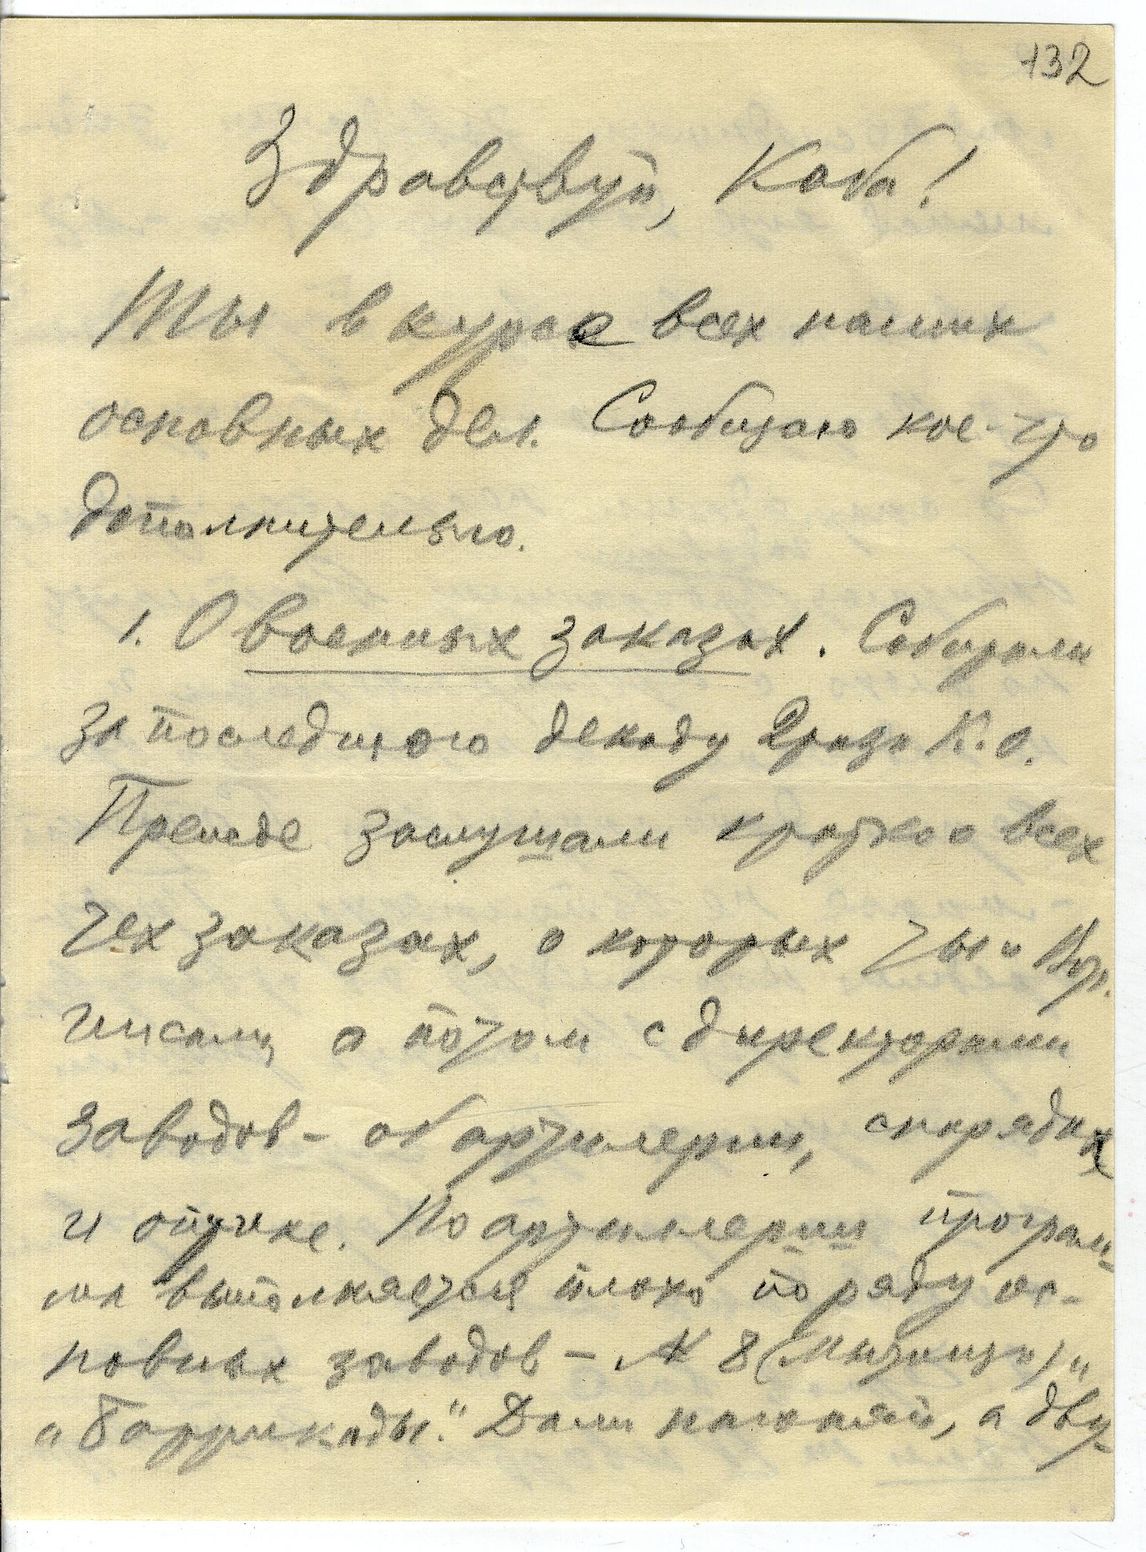 132
Здравствуй, Коба!
Ты в курсе всех наших
основных дел. Сообщаю кое-что
дополнительно.
1. О военных заказах. Собирали
за последнюю декаду 2 раза К.О.
Прежде заслушали кратко о всех
тех заказах, о которых ты и Вор.
писали, а потом с директорами
заводов – об артилерии, снарядах
и оптике. По артиллерии програм-
ма выполняется плохо по ряду ос-
новных заводов – № 8 (Мытищи) и
„Баррикады“. Дали нагоняй, а дву-